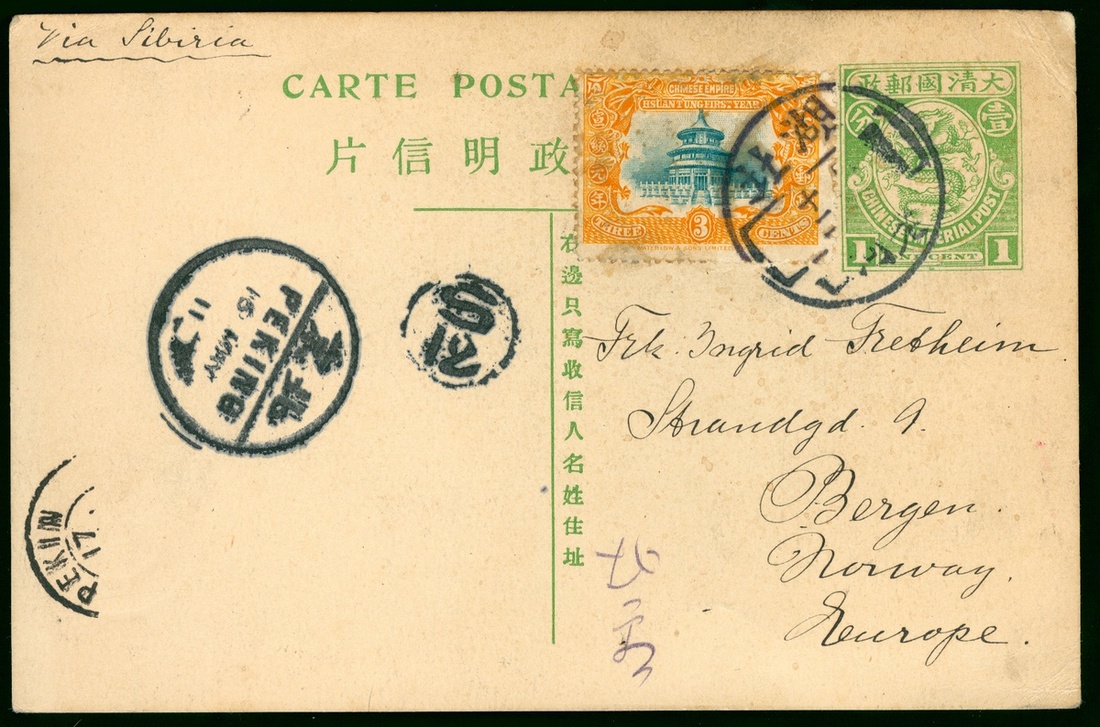 Via Sibiria
CARTE POSTA
片信明政
CHINESE EMPIRE
HSUAN TUNG FIRST YEAR
THREE 3 CENTS
WATERLOW & SONS LIMITED
政郵國清大
壹
CHINESE IMPERIAL POST
1 CENT 1
右邊只寫收信人名姓住址
北京
PEKING
16 MAY
11
PEKIN
17
Frk. Ingrid Fretheim
Strandgd. 9.
Bergen.
Norway.
Europe.